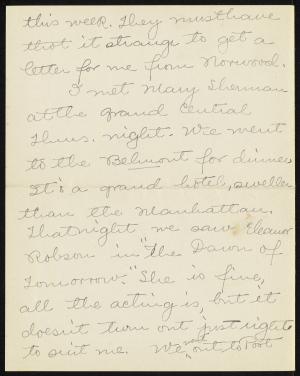 this week. They must have
thot it strange to get a
letter for me from Norwood.
I met Mary Sherman
at the Grand Central
Thurs. night. We went
to the Belmont for dinner
It's a grand hotel, sweller
than the Manhattan.
That night we saw Eleanor
Robson in "The Dawn of
Tomorrow." She is fine,
all the acting is, but it
doesn't turn out just right
to suit me. We went out to